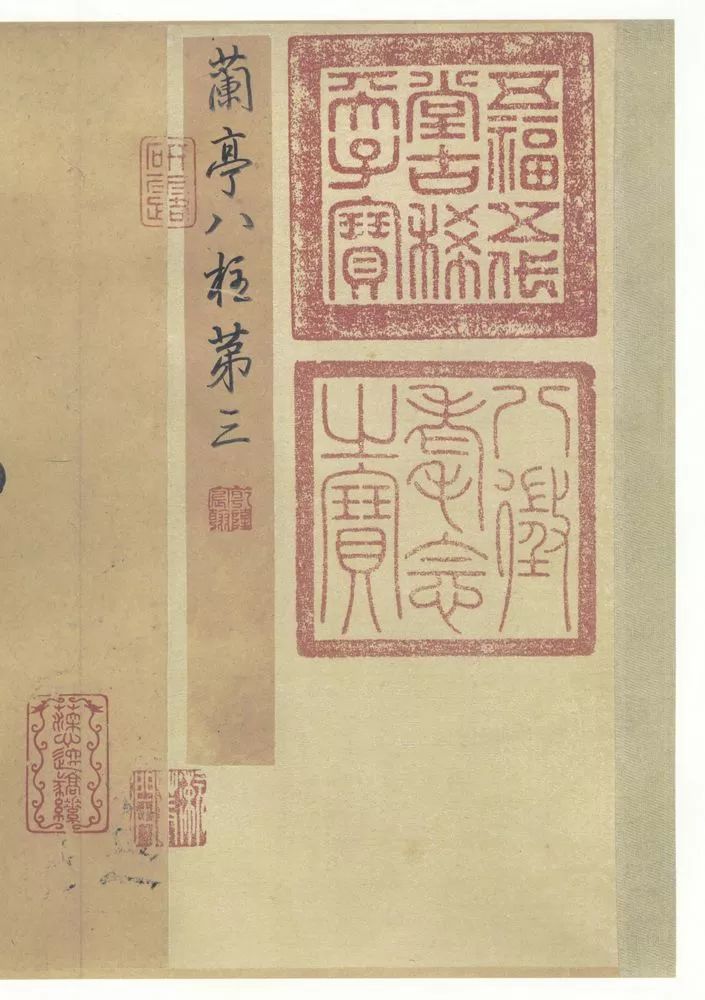 五福五代
堂古稀
天子寶
八徵
耄念
之寶
蘭亭八柱第三
乾隆
宸翰